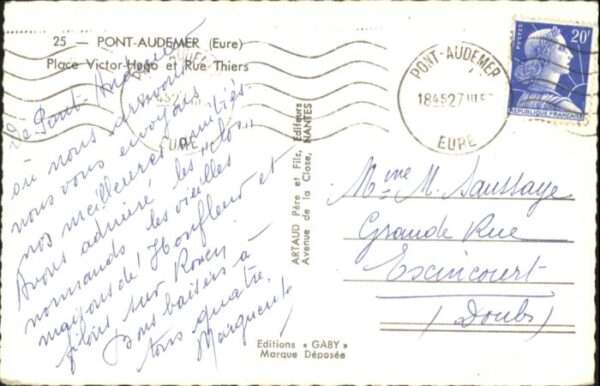 25 - PONT-AUDEMER (Eure)
Place Victor-Hugo et Rue Thiers
De Pont-Audemer
où nous arrivons
nous vous envoyons
nos meilleures amitiés.
Avons admiré les "clos"
normands, les vieilles
maisons de Honfleur et
filons sur Rouen
Bons baisers à
tous quatre.
Marguerite
Editions « GABY »
Marque Déposée
ARTAUD Père et Fils, Editeurs
Avenue de la Close, NANTES
PONT-AUDEMER
18H45 27 VII
EURE
EURE
POSTES
20F
REPUBLIQUE FRANÇAISE
Mme M. Saussaye
Grande Rue
Exincourt
(Doubs)